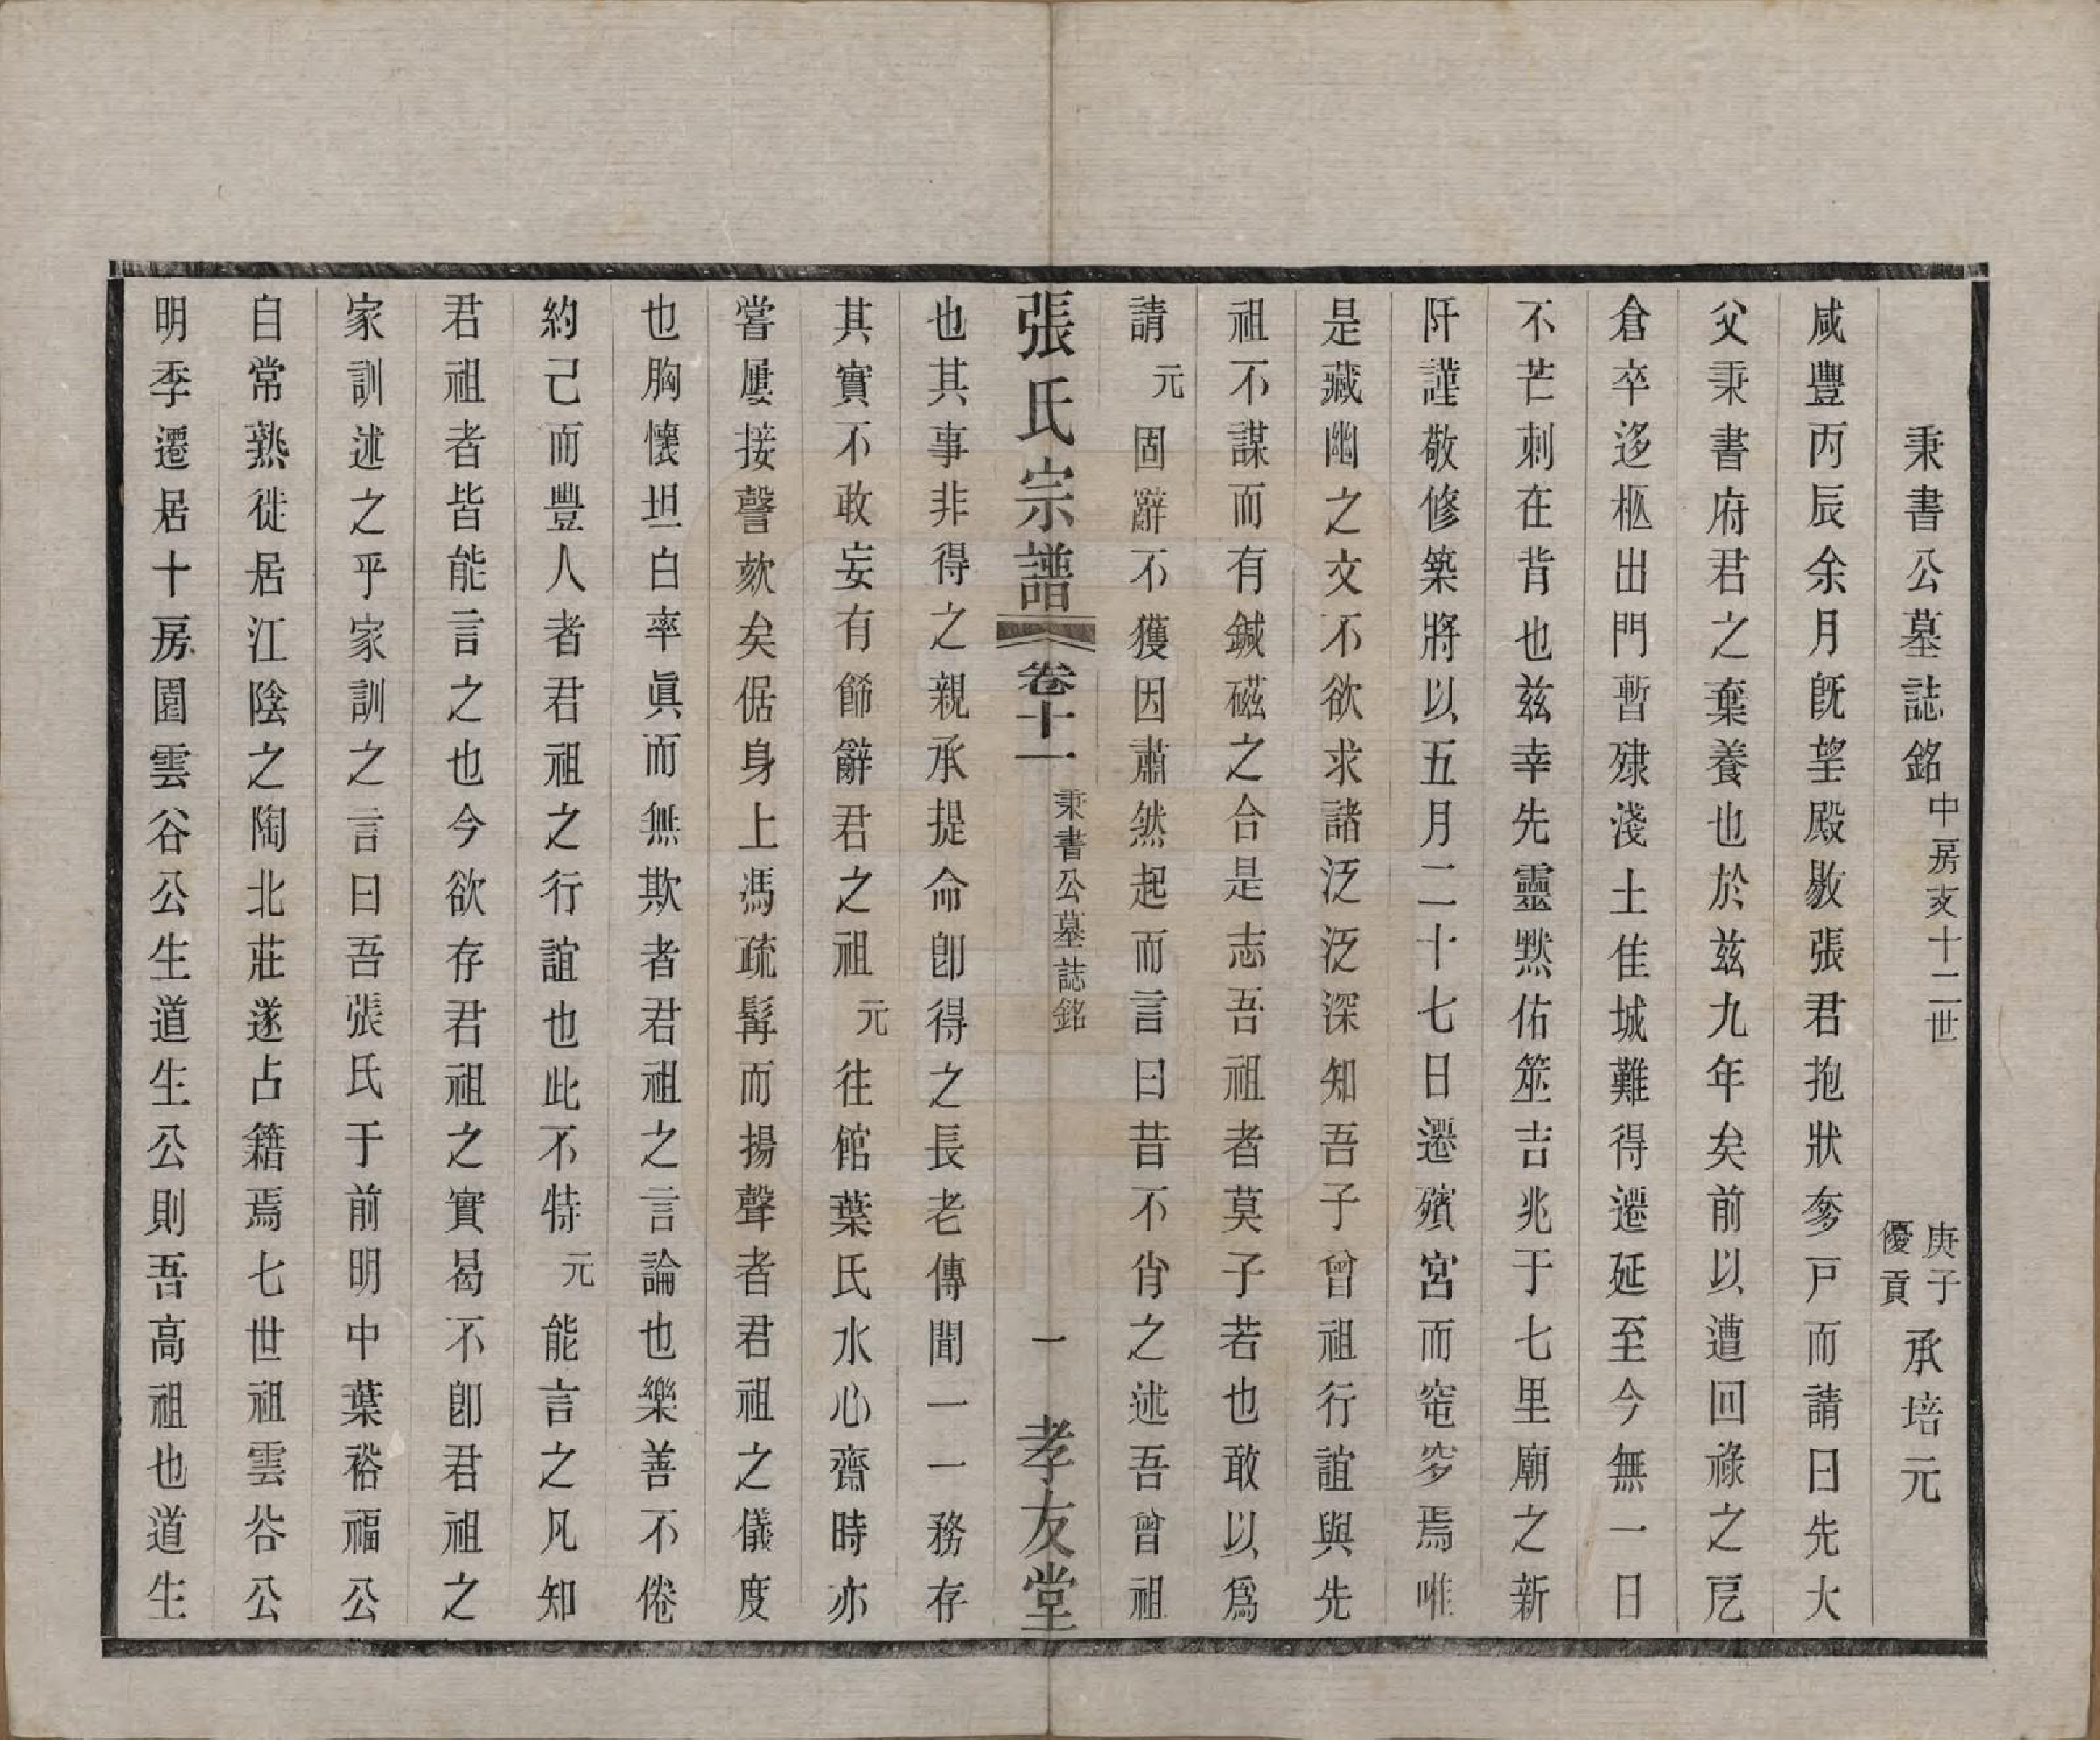 秉書公墓誌銘 中房支十二世 庚子優貢 承培元
咸豐丙辰余月旣望殿敭張君抱狀奓戸而請曰先大
父秉書府君之葉養也於兹九年矣前以遭回祿之戹
倉卒迻柩出門暫殔淺土佳城難得遷延至今無一日
不芒刺在背也兹幸先靈默佑筮吉兆于七里廟之新
阡謹敬修築將以五月二十七日遷殯宮而窀穸焉唯
是藏幽之文不欲求諸泛泛深知吾子曾祖行誼與先
祖不謀而有鍼磁之合是志吾祖者莫子若也敢以爲
請元固辭不獲因肅然起而言曰昔不肖之述吾曾祖
張氏宗譜 卷十一 秉書公墓誌銘 一 孝友堂
也其事非得之親承提命卽得之長老傳聞一一務存
其實不敢妄有飾辭君之祖元往館葉氏水心齋時亦
嘗屢接謦欬矣倨身上馮疏髯而揚聲者君祖之儀度
也胸懷坦白率眞而無欺者君祖之言論也樂善不倦
約己而豐人者君祖之行誼也此不特元能言之凡知
君祖者皆能言之也今欲存君祖之實曷不卽君祖之
家訓述之乎家訓之言曰吾張氏于前明中葉裕福公
自常熟徙居江陰之陶北莊遂占籍焉七世祖雲谷公
明季遷居十房園雲谷公生道生公則吾高祖也道生